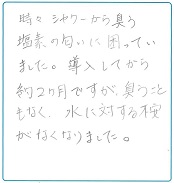 時々シャワーから臭う
塩素の匂いに困ってい
ました。導入してから
約2ヶ月ですが、臭うこと
もなく、水に対する不安
がなくなりました。